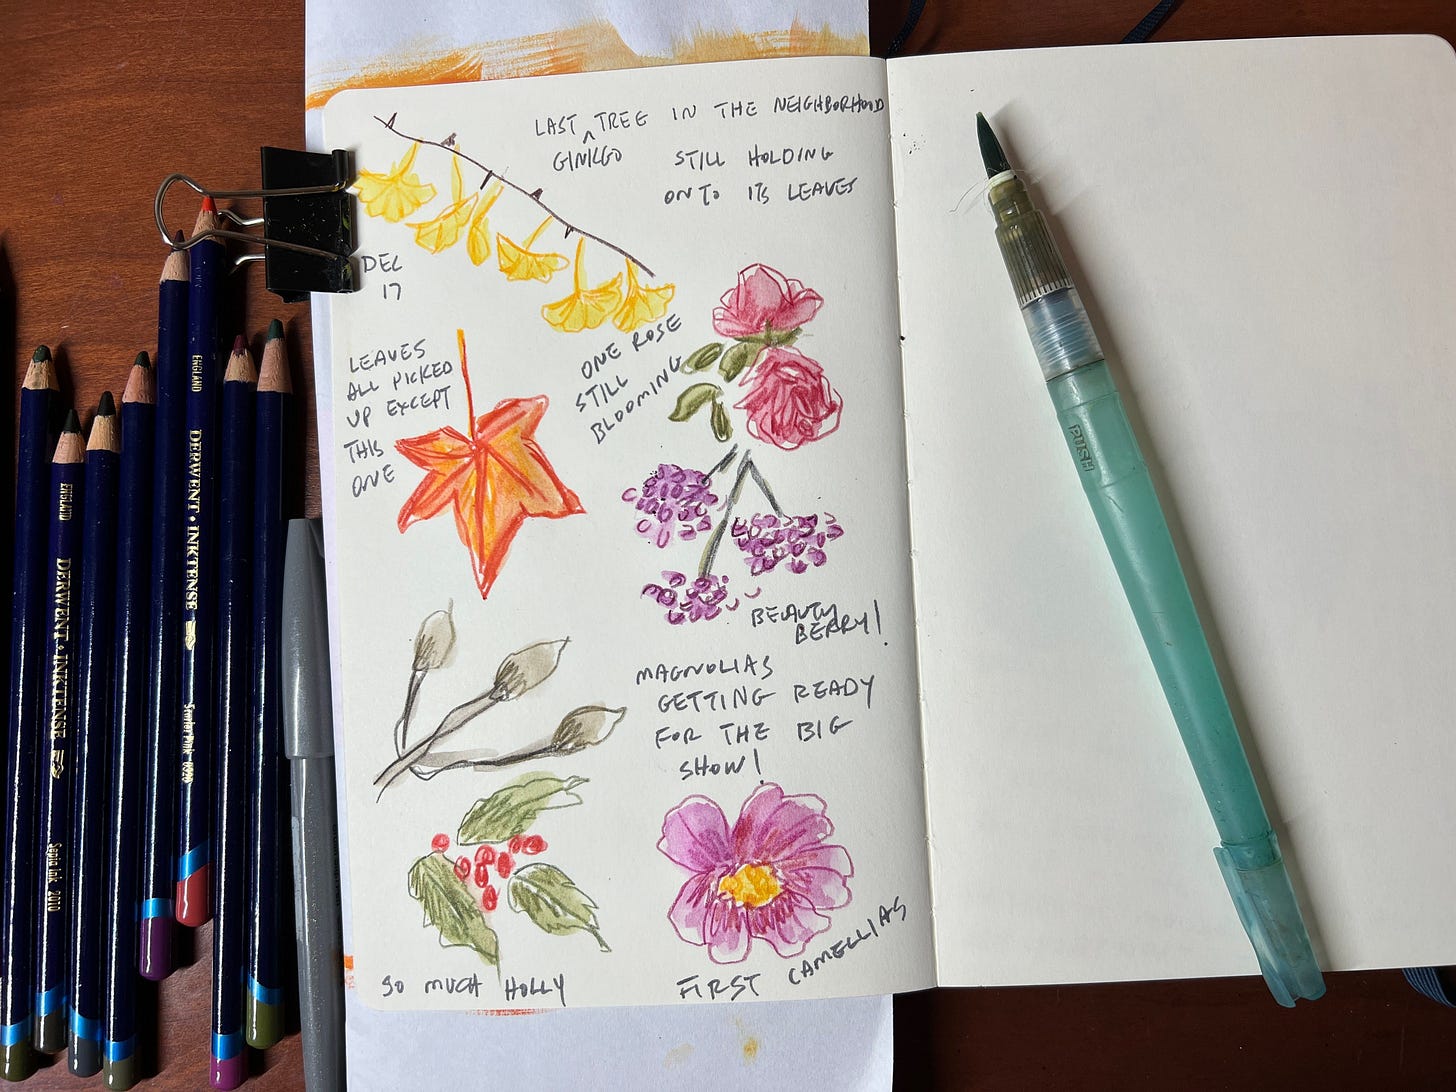 LAST GINKGO TREE IN THE NEIGHBORHOOD
STILL HOLDING
ON TO ITS LEAVES
DEC
17
LEAVES
ALL PICKED
UP EXCEPT
THIS
ONE
ONE ROSE
STILL
BLOOMING
BEAUTY
BERRY!
MAGNOLIAS
GETTING READY
FOR THE BIG
SHOW!
SO MUCH HOLLY
FIRST CAMELLIAS
ENGLAND
DERWENT · INKTENSE
Sepia Ink 2010
ENGLAND
DERWENT · INKTENSE
Scarlet Pink 0320
PUSH